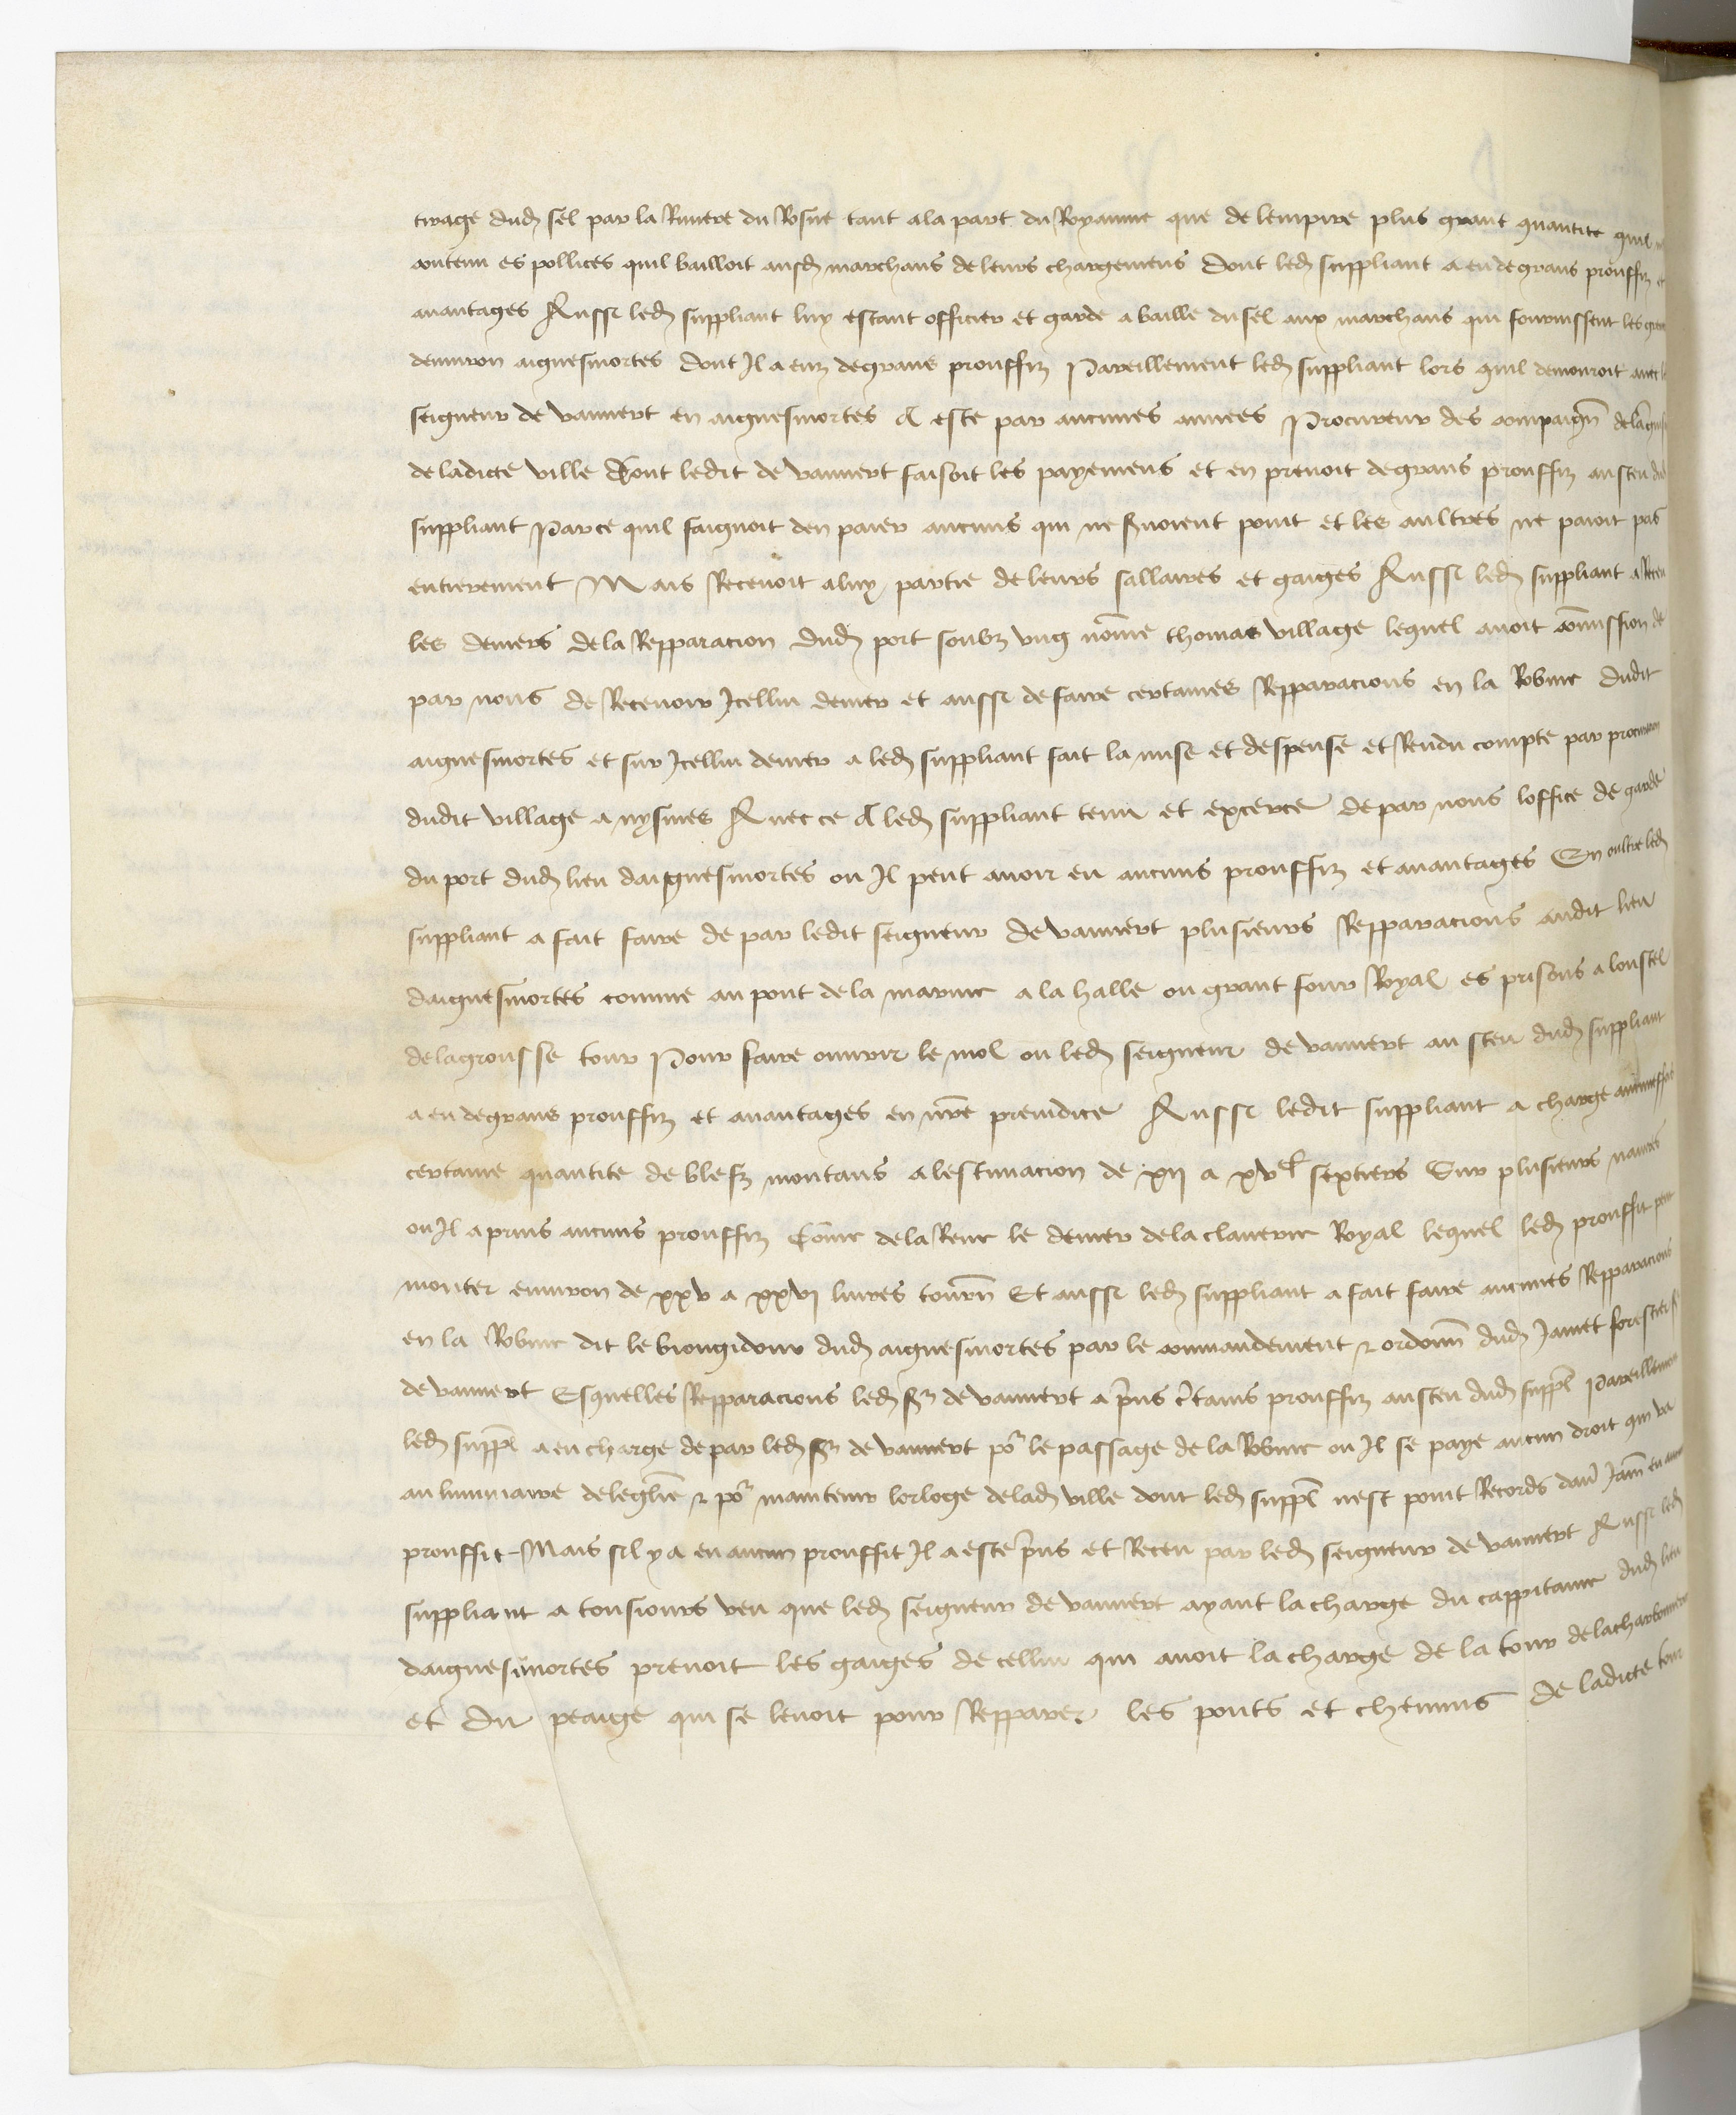 tirage dud sel par la Riviere du Rosne tant a la part du Royaume que de lempire plus grant quantite quil
contenu es pollices quil bailloit ausd marchans de leurs chargemens Dont led suppliant a eu de grans prouffiz
avantages Aussi led suppliant luy estant officier et garde a baille du sel aux marchans qui fournissent les
denviron aiguesmortes dont Il a euz de grans prouffiz Pareillement led suppliant lors quil demouroit avec
seigneur de vauvert en aiguesmortes A este par aucunes annees Procureur des compaign
de ladicte ville Dont ledit de vauvert faisoit les payemens et en prenoit de grans prouffiz au sceu dud
suppliant Parce quil faignoit den paier aucuns qui ne servoient point et les aultres ne paioit pas
entierement Mais Retenoit a luy partie de leurs sallaires et gaiges Aussi led suppliant a Receu
les deniers de la Repparacion dud port soubz ung nomme thomas village lequel avoit commission de
par nous de Recevoir Icellui denier et aussi de faire certaines Repparacions en la Robine dudit
aiguesmortes et sur Icellui denier a led suppliant fait la mise et despense et Rendu compte par
dudit village a nysmes Avec ce A led suppliant tenu et excerce de par nous loffice de garde
du port dud lieu daiguesmortes ou Il peut avoir eu aucuns prouffiz et avantages En oultre led
suppliant a fait faire de par ledit seigneur de vauvert plusieurs Repparacions audit lieu
daiguesmortes comme au pont de la marine a la halle ou grant four Royal es prisons a loustel
de la grousse tour Pour faire ouvrir le mol ou led seigneur de vauvert au sceu dud suppliant
a eu de grans prouffiz et avantages en nre preiudice Aussi ledit suppliant a charge
certaine quantite de blefz montans a lestimacion de xii a xvc sextiers Sur plusieurs navires
ou Il a prins aucuns prouffiz Come de la Reve le denier de la claverie Royal lequel led prouffit peut
monter environ de xxv a xxvi livres tourn Et aussi led suppliant a fait faire aucunes Repparacions
en la Robine dit le biougidour dud aiguesmortes par le commandement et ordonn dud Jamet forestier sr
de vauvert Esquelles Repparacions led sr de vauvert a prins certains prouffiz au sceu dud suppl Pareillement
led suppl a eu charge de par led sr de vauvert por le passage de la Robine ou Il se paye aucun droit qui va
au luminaire de leglise et por maintenir lorloge de lad ville dont led suppl nest point Records davoir Jam eu aucun
prouffit Mais sil y a eu aucun prouffit Il a este prins et Receu par led seigneur de vauvert Aussi led
suppliant a tousiours veu que led seigneur de vauvert ayant la charge du cappitaine dud lieu
daiguesmortes prenoit les gaiges de cellui qui avoit la charge de la tour de la charbonniere
et du peaige qui se levoit pour Repparer les ponts et chemins de ladicte tour